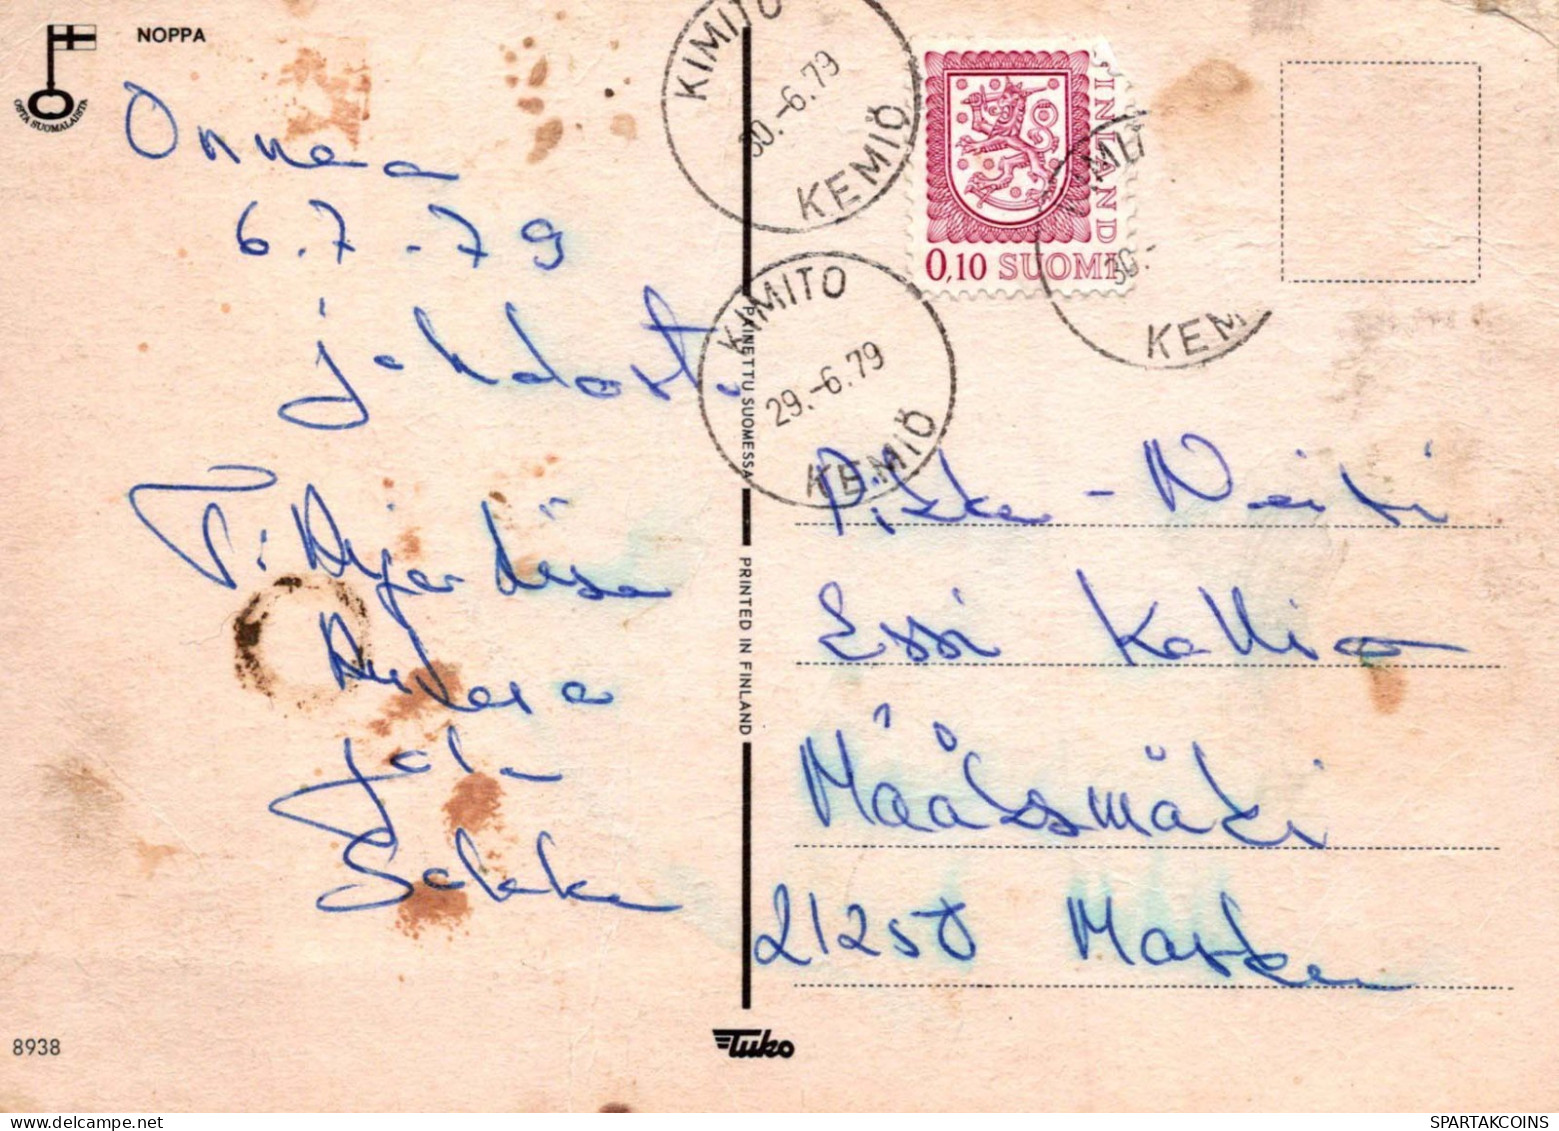 NOPPA
OSTA SUOMALAISTA
Onnea
6.7-79
johdosta
T: Aija Liisa
Jali
Sakke
8938
PAINETTU SUOMESSA
PRINTED IN FINLAND
Tuko
KIMITO
30.-6.79
KEMIÖ
KIMITO
29.-6.79
KEMIÖ
FINLAND
0,10 SUOMI
30.-
KEM
Pikku-Neiti
Essi Kallio
Määksmäki
21250 Masku
SPARTAKCOINS